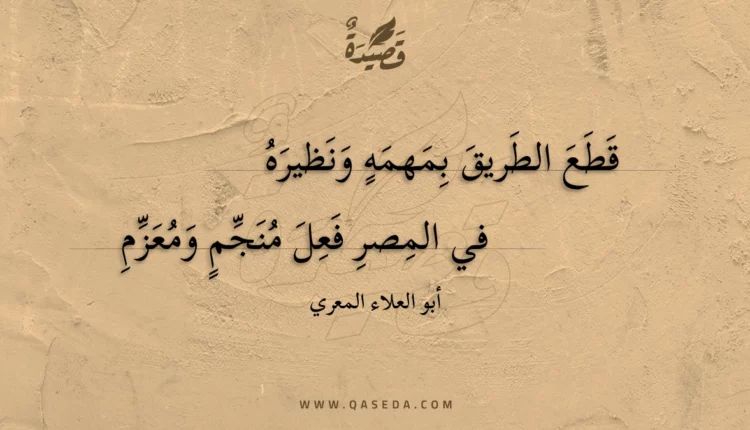 قَصِيدَةٌ
قَطَعَ الطَريقَ بِمَهمَهٍ وَنَظيرَهُ
في المِصرِ فَعِلَ مُنَجِّمٍ وَمُعَزِّمِ
أبو العلاء المعري
WWW.QASEDA.COM